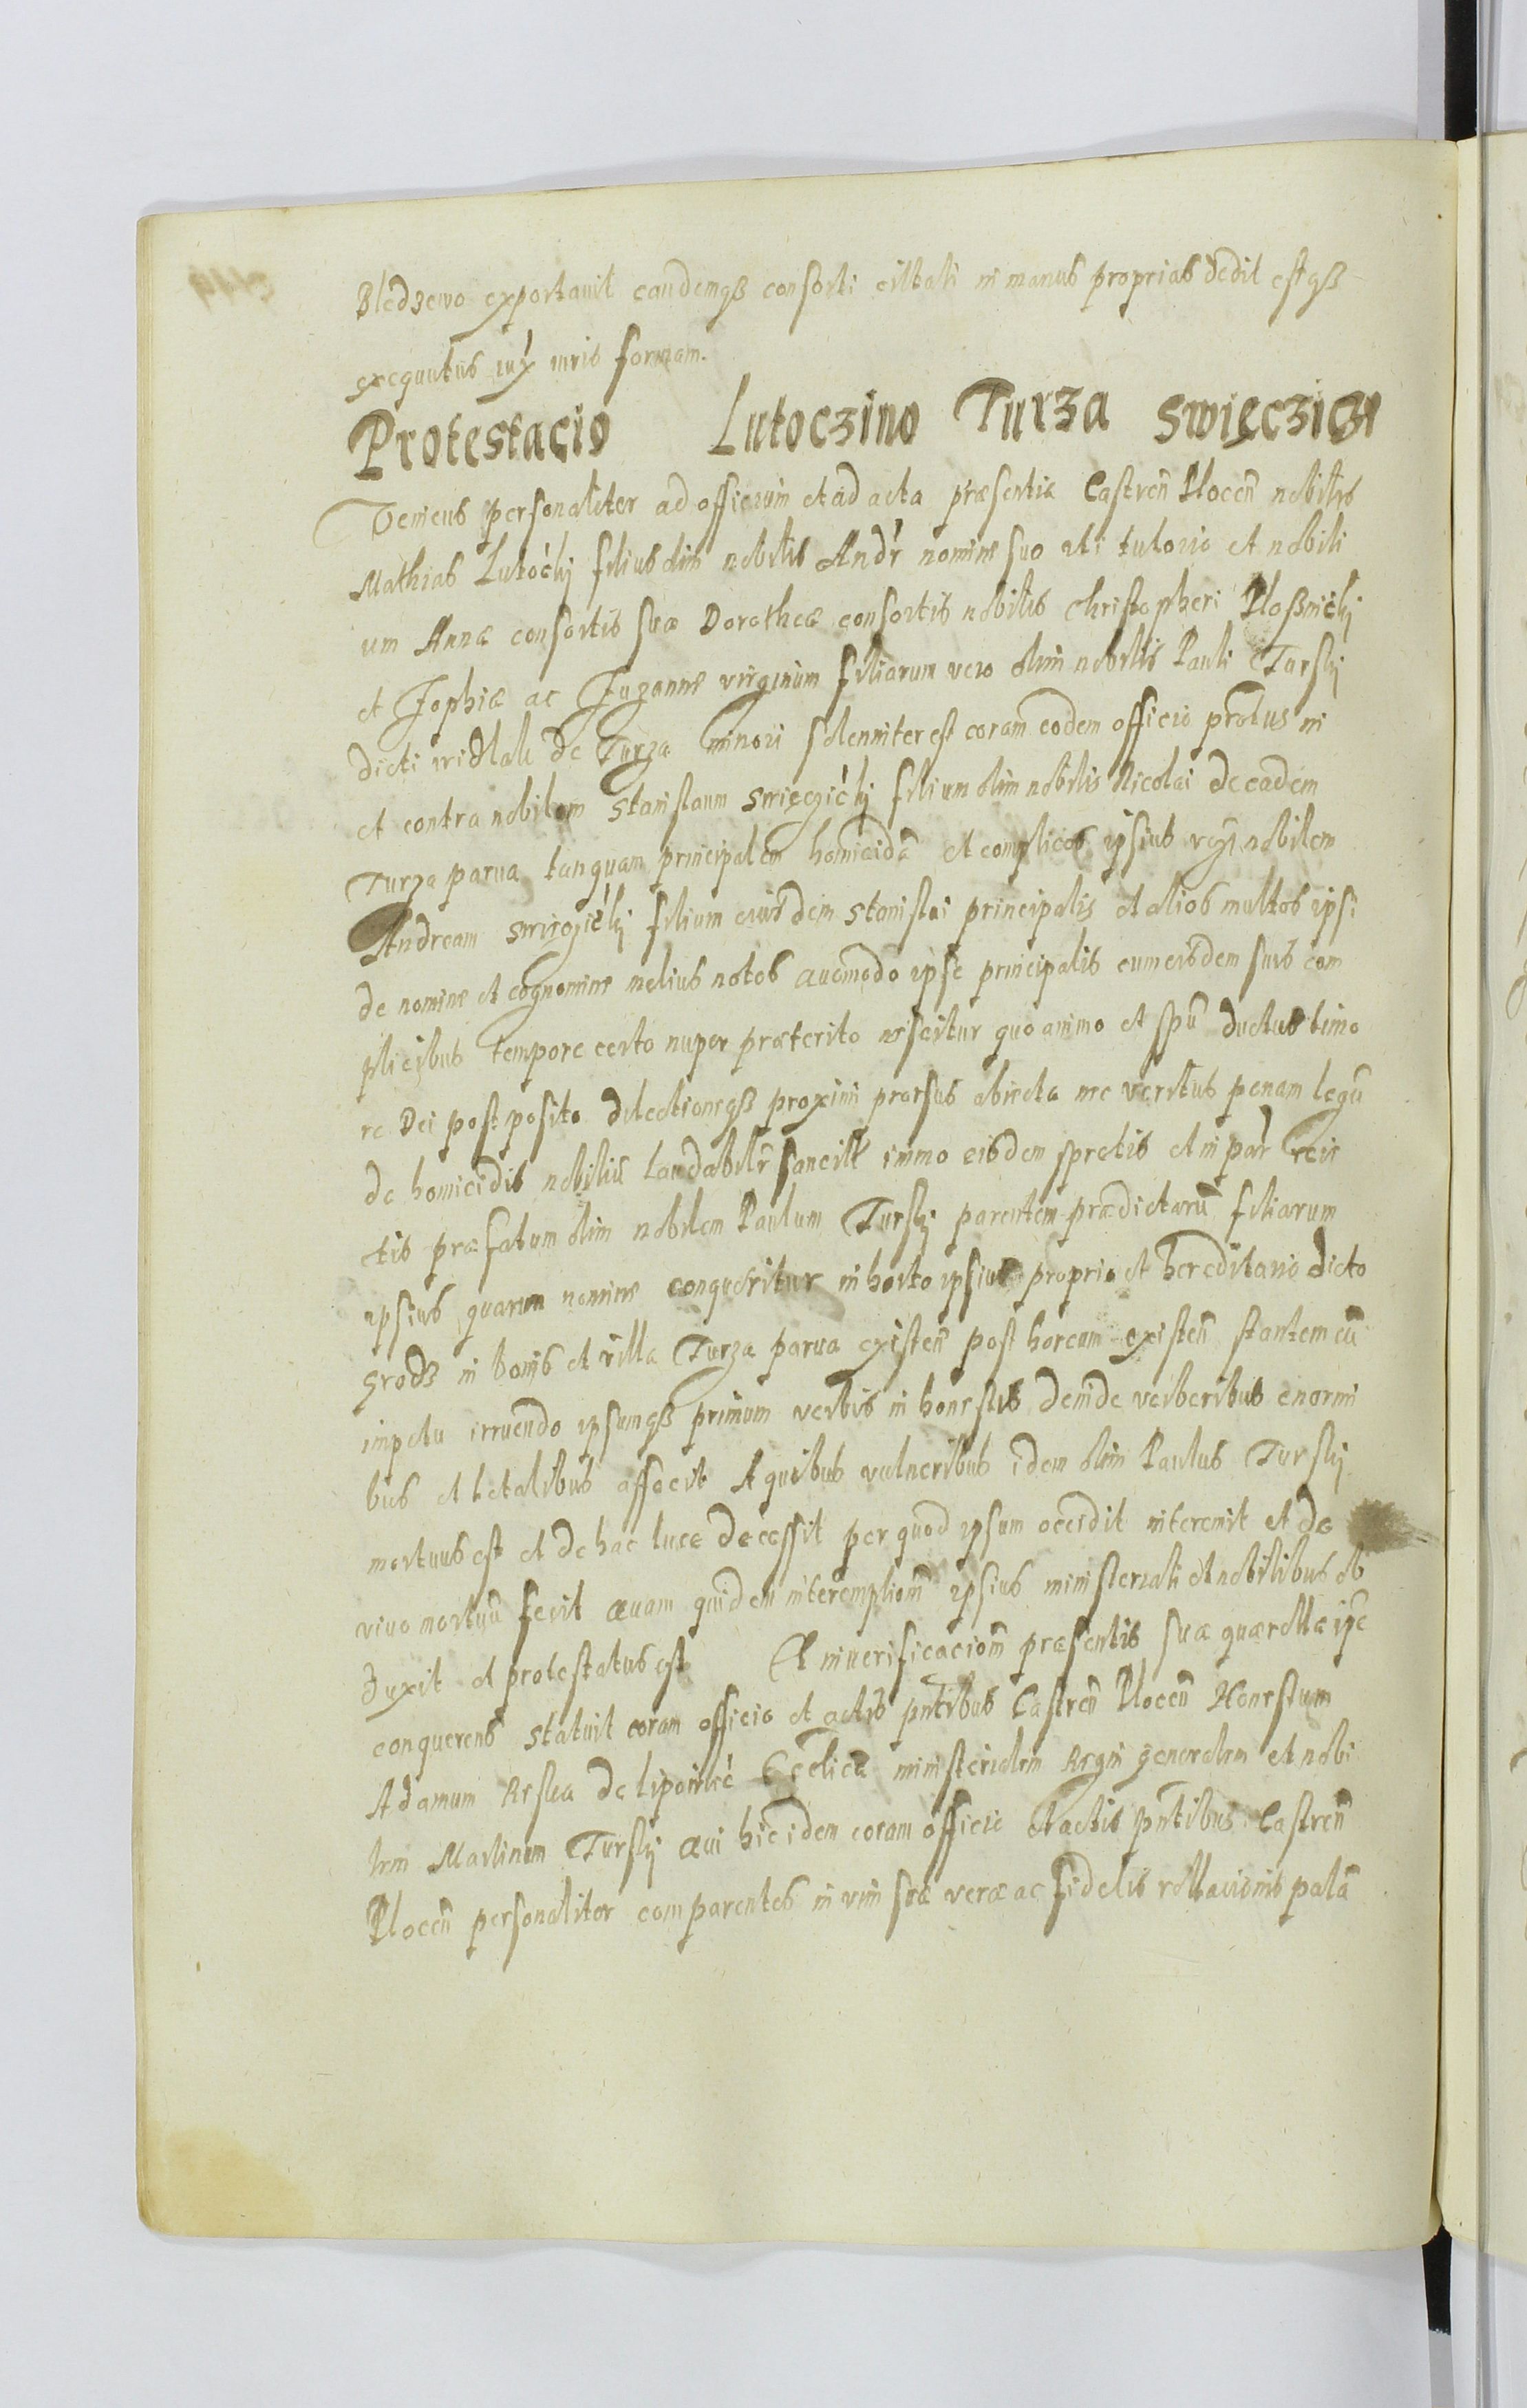 Bledzewo exportauit eandemqß consorti cittati in manus proprias dedit estqß
exequutus iux iuris formam.
Protestacio Lutoczino Turza Swięczicz
Veniens personaliter ad officium et ad acta præsentia Castren Plocen nobilis
Mathias Lutoczkÿ filius olim nobilis Andr nomine suo uti tutorio et nobili
um Annæ consortis suæ Dorotheæ consortis nobilis Christopheri Ploßniczkÿ
et Zophiæ ac Zuzanne virginum filiarum vero olim nobilis Pauli Turskÿ
dicti de Turza minori solenniter est coram eodem officio protus in
et contra nobilem Stanislaum Swięczickÿ filium olim nobilis Nicolai de eadem
Turza parua tanquam principalem homicidã et complices ipsius nobilem
Andream Swięczickÿ filium eiusdem Stanislai principalis et alios multos ipsi
de nomine et cognomine melius notos Quomodo ipse principalis cum eisdem suis com
plicibus tempore certo nuper præterito nescitur quo animo et spũ ductus timo
re Dei postposito dilectioneqß proximi prorsus abiecta nec veritus penam legũ
de homicidis nobiliũ laudabiliter sancitt immo eisdem spretis et in reie
ctis præfatum olim nobilem Paulum Turskÿ parentem prædictarũ filiarum
ipsius quarum nomine conqueritur in horto ipsius proprio et hereditario dicto
Grodz in bonis et villa Turza parua existeñ post horeum existeñ stantem cũ
impetu irruendo ipsumqß primum verbis inhonestis deinde verberibus enormi
bus et letalibus affecit A quibus vulneribus idem olim Paulus Turskÿ
mortuus est et de hac luce decessit per quod ipsum occidit interemit et de
viuo mortuũ fecit Quam quidem interemptionẽ ipsius ministeriali et nobilibus ob
duxit et protestatus est Et in verificacionẽ præsentis suæ quærellæ ipse
conquerens statuit coram officio et actis pñtibus Castren Plocen Honestum
Adamum Reska de ministerialem Regni generalem et nobi
lem Martinum Turskÿ Qui hic idem coram officio et actis pñtibus Castren
Plocen personaliter comparentes in vim suæ veræ ac fidelis rellacionis palã